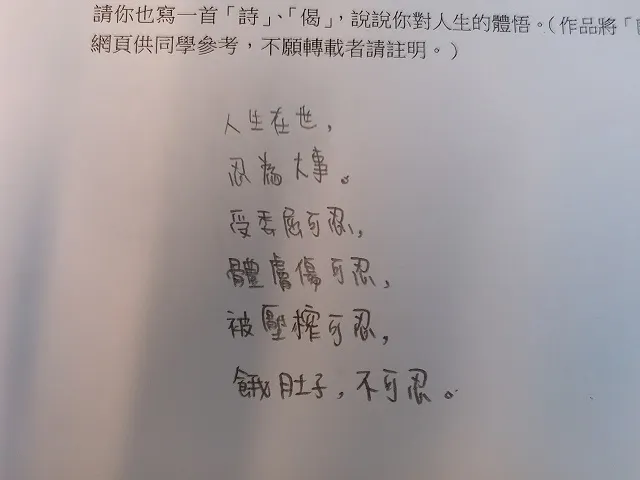 請你也寫一首「詩」、「偈」，說說你對人生的體悟。（作品將「
網頁供同學參考，不願轉載者請註明。）
人生在世，
忍為大事。
受委屈可忍，
體膚傷可忍，
被壓榨可忍，
餓肚子，不可忍。